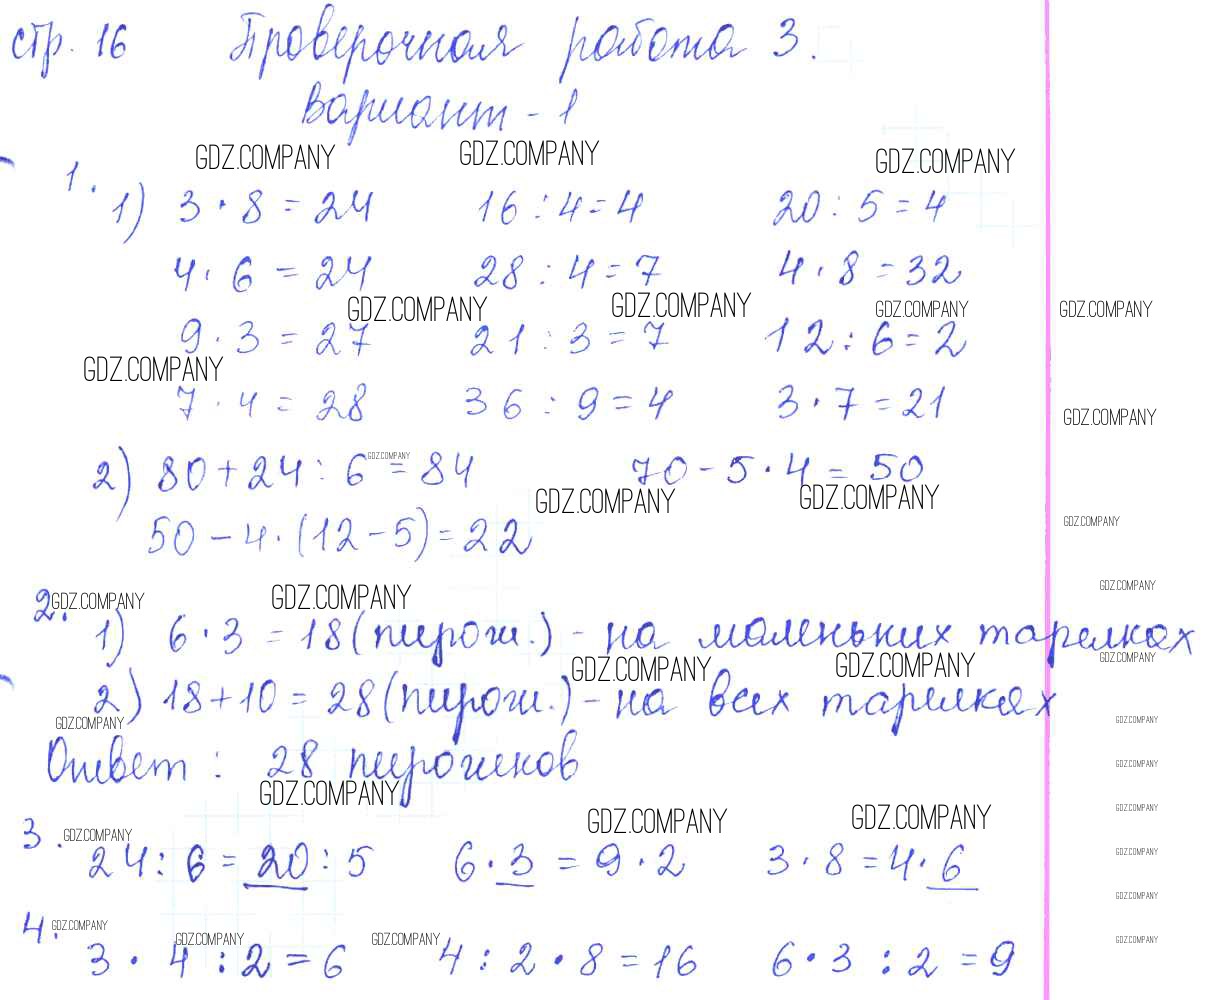 стр. 16 Проверочная работа 3.
Вариант - 1
GDZ.COMPANY GDZ.COMPANY GDZ.COMPANY
1. 1) 3 · 8 = 24 16 : 4 = 4 20 : 5 = 4
4 · 6 = 24 28 : 4 = 7 4 · 8 = 32
GDZ.COMPANY GDZ.COMPANY GDZ.COMPANY GDZ.COMPANY
9 · 3 = 27 21 : 3 = 7 12 : 6 = 2
GDZ.COMPANY
7 · 4 = 28 36 : 9 = 4 3 · 7 = 21
GDZ.COMPANY
2) 80 + 24 : 6 = 84 70 - 5 · 4 = 50
GDZ.COMPANY
GDZ.COMPANY GDZ.COMPANY
GDZ.COMPANY
50 - 4 · (12 - 5) = 22
GDZ.COMPANY
2. GDZ.COMPANY GDZ.COMPANY
1) 6 · 3 = 18 (пирож.) - на маленьких тарелках
GDZ.COMPANY GDZ.COMPANY GDZ.COMPANY
2) 18 + 10 = 28 (пирож.) - на всех тарелках
GDZ.COMPANY GDZ.COMPANY
Ответ : 28 пирожков
GDZ.COMPANY
GDZ.COMPANY GDZ.COMPANY
GDZ.COMPANY GDZ.COMPANY
3. GDZ.COMPANY
24 : 6 = 20 : 5 6 · 3 = 9 · 2 3 · 8 = 4 · 6
GDZ.COMPANY
GDZ.COMPANY
4. GDZ.COMPANY
GDZ.COMPANY GDZ.COMPANY GDZ.COMPANY
3 · 4 : 2 = 6 4 : 2 · 8 = 16 6 · 3 : 2 = 9